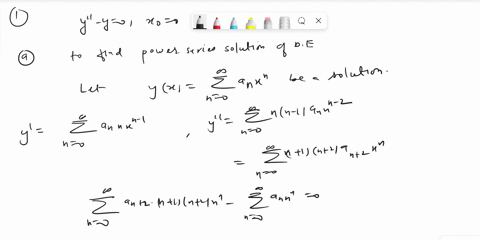 ① y'' - y = 0, x₀ = 0
ⓐ to find power series solution of D.E
Let y(x) = ∑_{n=0}^{∞} aₙxⁿ be a solution.
y' = ∑_{n=0}^{∞} aₙ n xⁿ⁻¹ , y'' = ∑_{n=0}^{∞} n(n-1) aₙ xⁿ⁻²
= ∑_{n=0}^{∞} (n+1)(n+2) aₙ₊₂ xⁿ
∑_{n=0}^{∞} aₙ₊₂ · (n+1)(n+2) xⁿ - ∑_{n=0}^{∞} aₙ xⁿ = 0